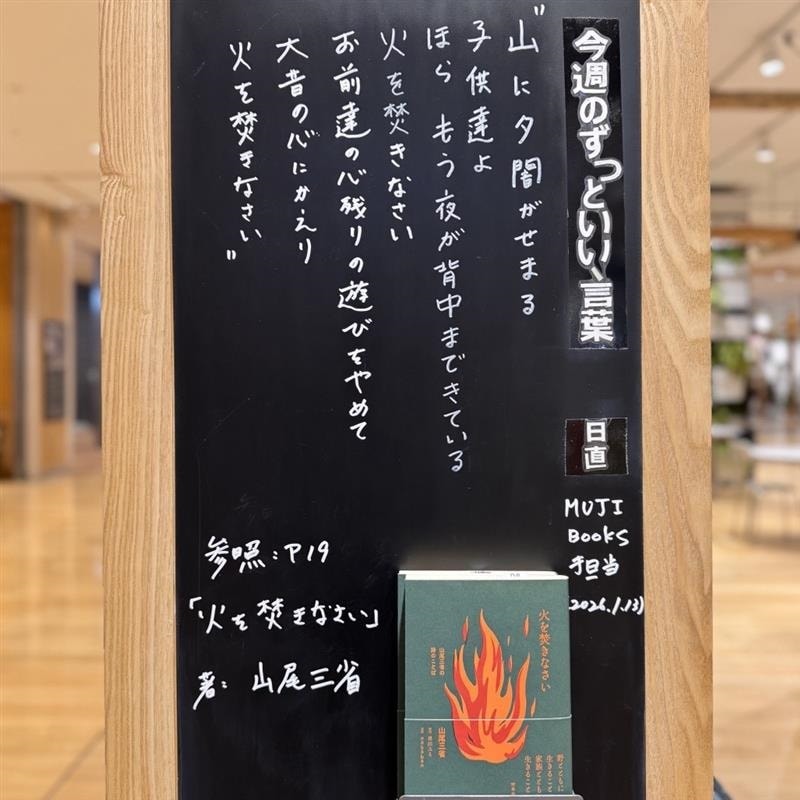 今週のずっといい、言葉
日直
MUJI
BOOKS
担当
2026.1.13)
"山に夕闇がせまる
子供達よ
ほら もう夜が背中まできている
火を焚きなさい
お前達の心残りの遊びをやめて
大昔の心にかえり
火を焚きなさい"
参照:P19
「火を焚きなさい」
著:山尾三省
火を焚きなさい
山尾三省の
詩のことば
山尾三省
野とともに
生きること
家族ととも
生きること